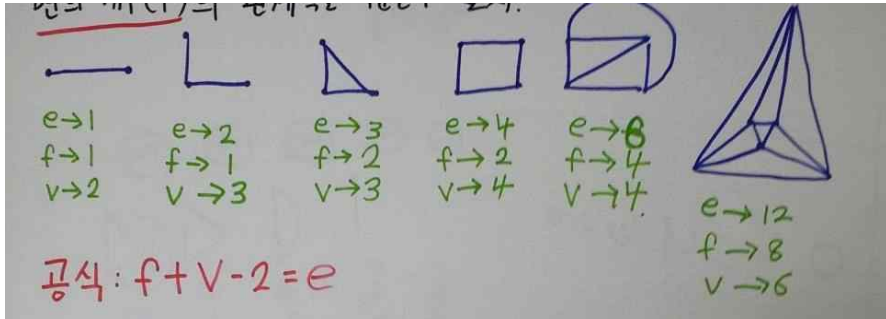 e→1
f→1
v→2
e→2
f→1
v→3
e→3
f→2
v→3
e→4
f→2
v→4
e→6
f→4
v→4.
e→12
f→8
v→6
공식: f+v-2=e